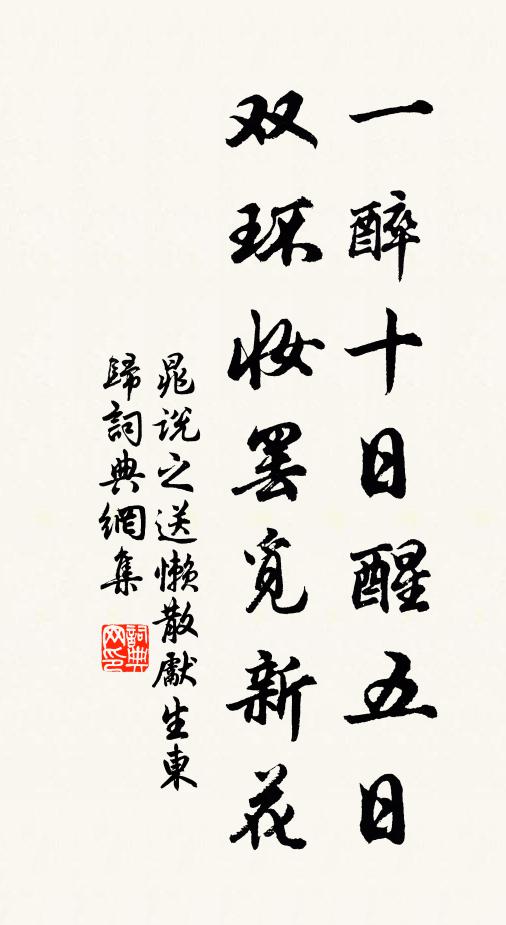 一醉十日醒五日
双环妆罢觅新花
晁说之送懒散獻生東
歸詞典網集
詞典
网印